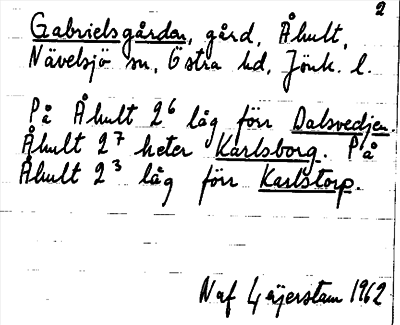 2
Gabrielsgården, gård, Åhult,
Nävelsjö sn, Östra hd, Jönk. l.
På Åhult 2⁶ låg förr Dalsvedjen.
Åhult 2⁷ heter Karlsborg. På
Åhult 2³ låg förr Karlstorp.
N af Gäjerstam 1962